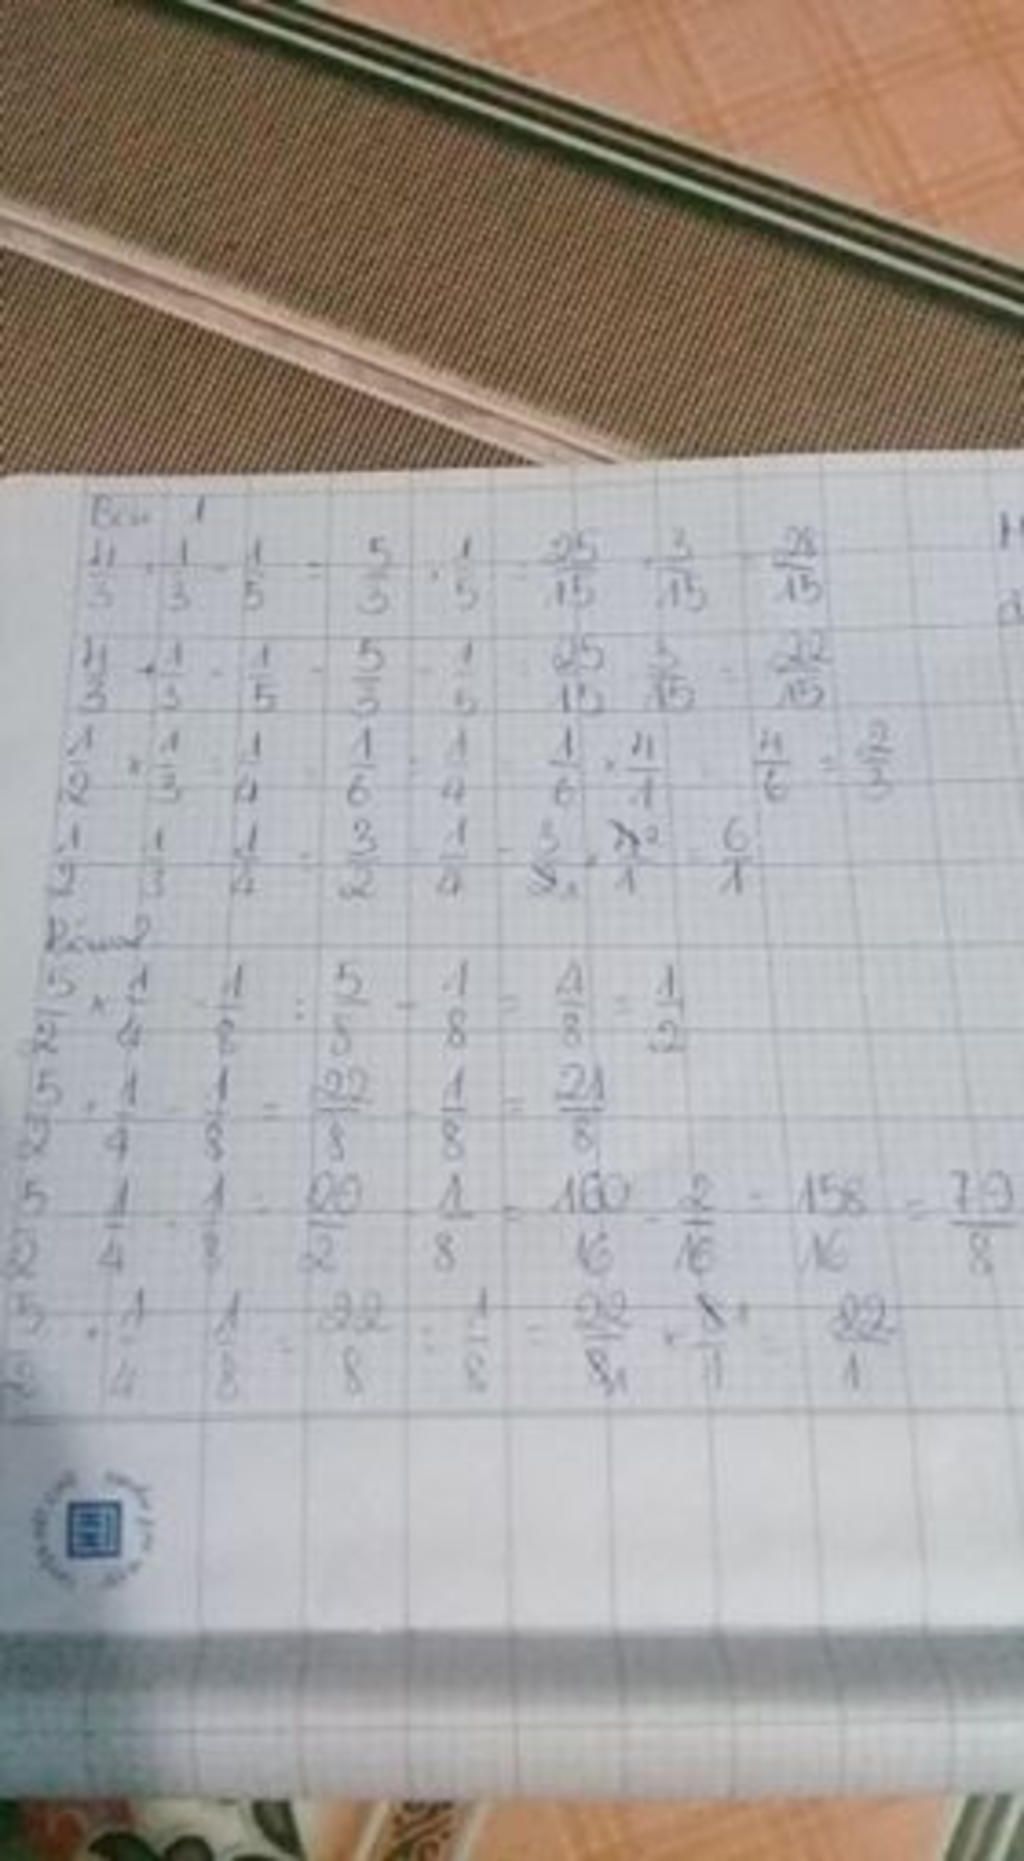 Bài 1
4/3 + 1/3 + 1/5 = 5/3 + 1/5 = 25/15 + 3/15 = 28/15
4/3 + 1/3 - 1/5 = 5/3 - 1/5 = 25/15 - 3/15 = 22/15
1/2 × 1/3 : 1/4 = 1/6 : 1/4 = 1/6 × 4/1 = 4/6 = 2/3
1/2 : 1/3 : 1/4 = 3/2 : 1/4 = 3/2 × 4/1 = 6/1
5/2 × 1/4 - 1/8 = 5/8 - 1/8 = 4/8 = 1/2
5/2 + 1/4 - 1/8 = 22/8 - 1/8 = 21/8
5/2 : 1/4 - 1/8 = 20/2 - 1/8 = 160/16 - 2/16 = 158/16 = 79/8
5/2 + 1/4 : 1/8 = 22/8 : 1/8 = 22/8 × 8/1 = 22/1